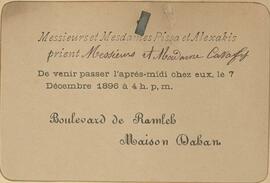 Messieurs et Mesdames Pissa et Alexakis
prient Messieurs et Madame Cavafy
De venir passer l'aprés-midi chez eux, le 7
Décembre 1896 à 4 h. p. m.
Boulevard de Ramleh
Maison Dahan